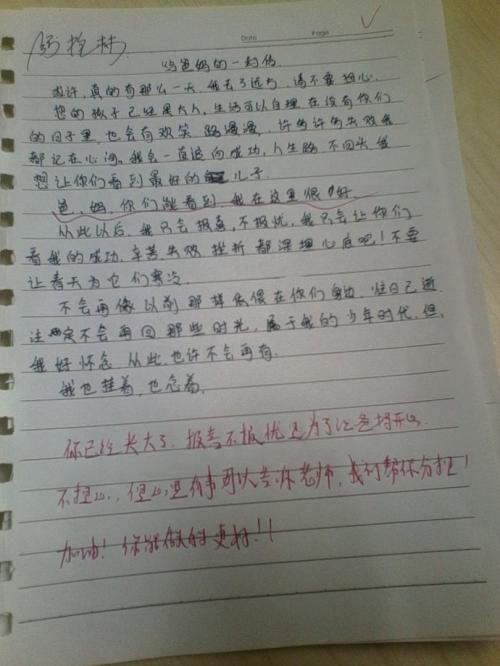 Date Page
给爸妈的一封信
或许,真的有那么一天,我去了远方,请不要担心.
您的孩子已经是大人,生活可以自理在没有你们
的日子里,也会有欢笑 路漫漫,许多许多失败我
都记在心间,我会一直追向成功,人生路,不回头我
想让你们看到最好的儿子.
爸,妈,你们就看到 我在这里很好
从此以后,我只会报喜,不报忧,我只会让你们
看我的成功,辛苦 失败 挫折 都深埋心底吧!不要
让春天为它们寒冷
不会再像以前那样依偎在你们身边,但自己逝
注定不会再回那些时光,属于我的少年时代,但,
我好怀念 从此也许不会再有.
我也挂着,也念着,
你已经长大了.报喜不报忧是为了让爸妈开心
不担心,但心里有事可以告诉老师,我可帮你分担!
加油!你能做的更好!!